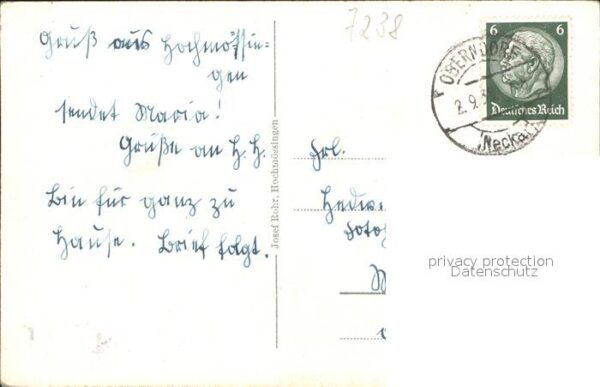 Gruß aus Hochmössin-
gen
sendet Maria!
Grüße an H. H.
Bin für ganz zu
Hause. Brief folgt.
Josef Rohr, Hochmössingen
7238
6 6
Deutsches Reich
OBERNDORF
2.9.3
(Neckar)
Frl.
Hedwi
Foto
privacy protection
Datenschutz